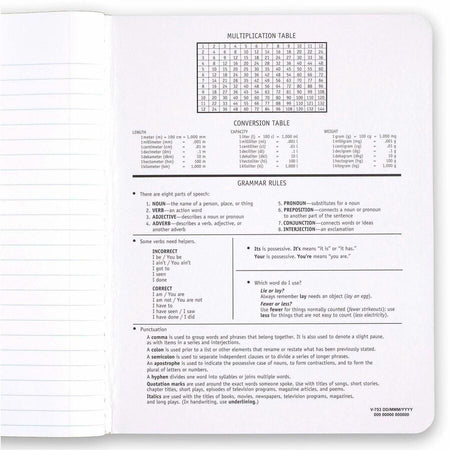 MULTIPLICATION TABLE
1 2 3 4 5 6 7 8 9 10 11 12
2 4 6 8 10 12 14 16 18 20 22 24
3 6 9 12 15 18 21 24 27 30 33 36
4 8 12 16 20 24 28 32 36 40 44 48
5 10 15 20 25 30 35 40 45 50 55 60
6 12 18 24 30 36 42 48 54 60 66 72
7 14 21 28 35 42 49 56 63 70 77 84
8 16 24 32 40 48 56 64 72 80 88 96
9 18 27 36 45 54 63 72 81 90 99 108
10 20 30 40 50 60 70 80 90 100 110 120
11 22 33 44 55 66 77 88 99 110 121 132
12 24 36 48 60 72 84 96 108 120 132 144
CONVERSION TABLE
LENGTH
1 meter (m) = 100 cm = 1,000 mm
1 millimeter (mm) = .001 m
1 centimeter (cm) = .01 m
1 decimeter (dm) = .1 m
1 dekameter (dam) = 10 m
1 hectometer (hm) = 100 m
1 kilometer (km) = 1,000 m
CAPACITY
1 liter (l) = 100 cl = 1,000 ml
1 milliliter (ml) = .001 l
1 centiliter (cl) = .01 l
1 deciliter (dl) = .1 l
1 dekaliter (dal) = 10 l
1 hectoliter (hl) = 100 l
1 kiloliter (kl) = 1,000 l
WEIGHT
1 gram (g) = 100 cg = 1,000 mg
1 milligram (mg) = .001 g
1 centigram (cg) = .01 g
1 decigram (dg) = .1 g
1 dekagram (dag) = 10 g
1 hectogram (hg) = 100 g
1 kilogram (kg) = 1,000 g
GRAMMAR RULES
• There are eight parts of speech:
1. NOUN—the name of a person, place, or thing
2. VERB—an action word
3. ADJECTIVE—describes a noun or pronoun
4. ADVERB—describes a verb, adjective, or
another adverb
5. PRONOUN—substitutes for a noun
6. PREPOSITION—connects a noun or pronoun
to another part of the sentence
7. CONJUNCTION—connects words or ideas
8. INTERJECTION—an exclamation
• Some verbs need helpers.
INCORRECT
I be / You be
I ain't / You ain't
I got to
I seen
I done
CORRECT
I am / You are
I am not / You are not
I have to
I have seen / I saw
I have done / I did
• Its is possessive. It's means "it is" or "it has."
Your is possessive. You're means "you are."
• Which word do I use?
Lie or lay?
Always remember lay needs an object (lay an egg).
Fewer or less?
Use fewer for things normally counted (fewer strikeouts); use
less for things are not easy to count (less electricity).
• Punctuation
A comma is used to group words and phrases that belong together. It is also used to denote a slight pause,
as with items in a series and interjections.
A colon is used prior to a list or other elements that rename or restate what has been previously stated.
A semicolon is used to separate independent clauses or to divide a series of longer phrases.
An apostrophe is used to indicate the possessive case of nouns, to form contractions, and to form the
plural of letters or numbers.
A hyphen divides one word into syllables or joins multiple words.
Quotation marks are used around the exact words someone spoke. Use with titles of songs, short stories,
chapter titles, short plays, episodes of television programs, magazine articles, and poems.
Italics are used with the titles of books, movies, newspapers, television programs, magazines,
and long plays. (In handwriting, use underlining.)
V-703 DD/MMM/YYYY
000 00000 000000